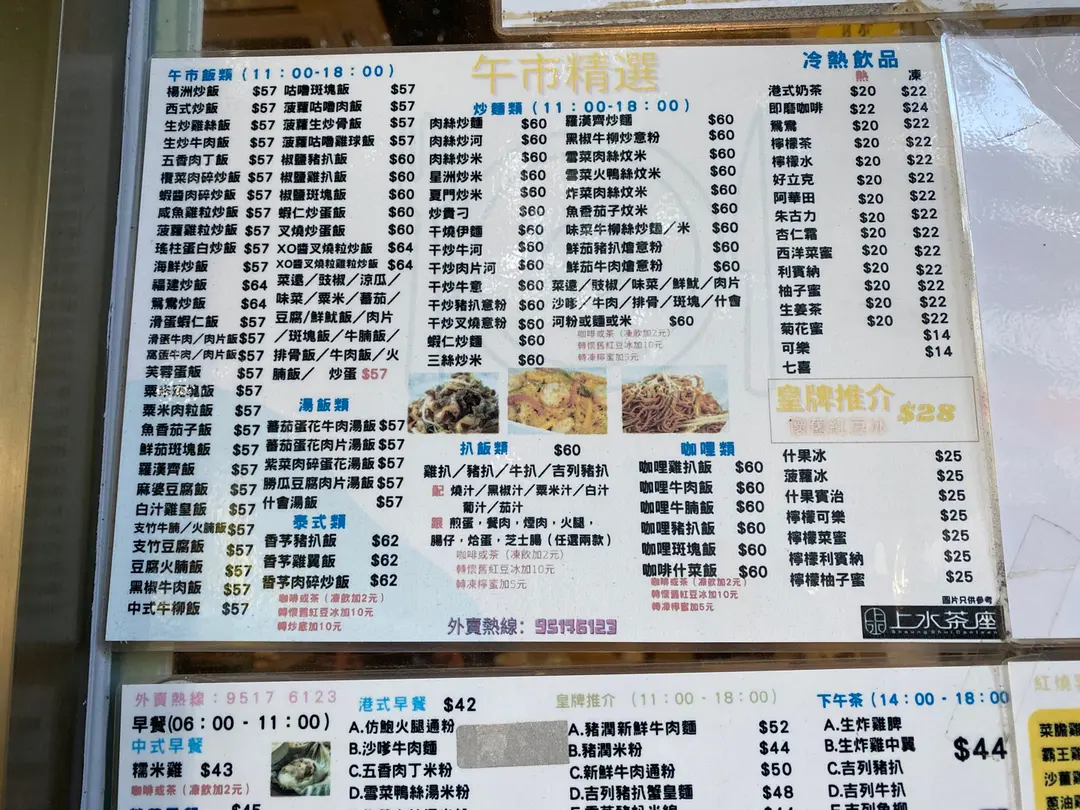 午市精選
午市飯類（11：00-18：00）
楊洲炒飯 $57
西式炒飯 $57
生炒雞絲飯 $57
生炒牛肉飯 $57
五香肉丁飯 $57
欖菜肉碎炒飯 $57
蝦醬肉碎炒飯 $57
咸魚雞粒炒飯 $57
菠蘿雞粒炒飯 $57
瑤柱蛋白炒飯 $57
海鮮炒飯 $57
福建炒飯 $64
鴛鴦炒飯 $64
滑蛋蝦仁飯 $57
滑蛋牛肉／肉片飯 $57
窩蛋牛肉／肉片飯 $57
芙蓉蛋飯 $57
粟米斑塊飯 $57
粟米肉粒飯 $57
魚香茄子飯 $57
鮮茄斑塊飯 $57
羅漢齊飯 $57
麻婆豆腐飯 $57
白汁雞皇飯 $57
支竹牛腩／火腩飯 $57
支竹豆腐飯 $57
豆腐火腩飯 $57
黑椒牛肉飯 $57
中式牛柳飯 $57
咕嚕斑塊飯 $57
菠蘿咕嚕肉飯 $57
菠蘿生炒骨飯 $57
菠蘿咕嚕雞球飯 $57
椒鹽豬扒飯 $60
椒鹽雞扒飯 $60
椒鹽斑塊飯 $60
蝦仁炒蛋飯 $60
叉燒炒蛋飯 $60
XO醬叉燒粒炒飯 $64
XO醬叉燒粒雞粒炒飯 $64
菜遠／豉椒／涼瓜／
味菜／粟米／蕃茄／
豆腐／鮮魷飯／肉片
／斑塊飯／牛腩飯／
排骨飯／牛肉飯／火
腩飯／ 炒蛋 $57
湯飯類
蕃茄蛋花牛肉湯飯 $57
蕃茄蛋花肉片湯飯 $57
紫菜肉碎蛋花湯飯 $57
勝瓜豆腐肉片湯飯 $57
什會湯飯 $57
泰式類
香茅豬扒飯 $62
香茅雞翼飯 $62
香茅肉碎炒飯 $62
咖啡或茶（凍飲加2元）
轉懷舊紅豆冰加10元
轉炒底加10元
炒麵類（11：00-18：00）
肉絲炒麵 $60
肉絲炒河 $60
肉絲炒米 $60
星洲炒米 $60
夏門炒米 $60
炒貴刁 $60
干燒伊麵 $60
干炒牛河 $60
干炒肉片河 $60
干炒牛意 $60
干炒豬扒意粉 $60
干炒叉燒意粉 $60
蝦仁炒麵 $60
三絲炒米 $60
羅漢齊炒麵 $60
黑椒牛柳炒意粉 $60
雪菜肉絲炆米 $60
雪菜火鴨絲炆米 $60
炸菜肉絲炆米 $60
魚香茄子炆米 $60
味菜牛柳絲炒麵／米 $60
鮮茄豬扒燴意粉 $60
鮮茄牛肉燴意粉 $60
菜遠／豉椒／味菜／鮮魷／肉片
沙嗲／牛肉／排骨／斑塊／什會
河粉或麵或米 $60
咖啡或茶（凍飲加2元）
轉懷舊紅豆冰加10元
轉凍檸蜜加5元
扒飯類 $60
雞扒／豬扒／牛扒／吉列豬扒
配 燒汁／黑椒汁／粟米汁／白汁
葡汁／茄汁
跟 煎蛋，餐肉，煙肉，火腿，
腸仔，烚蛋，芝士腸（任選兩款）
咖啡或茶（凍飲加2元）
轉懷舊紅豆冰加10元
轉凍檸蜜加5元
咖哩類
咖哩雞扒飯 $60
咖哩牛肉飯 $60
咖哩牛腩飯 $60
咖哩豬扒飯 $60
咖哩斑塊飯 $60
咖哩什菜飯 $60
咖啡或茶（凍飲加2元）
轉懷舊紅豆冰加10元
轉凍檸蜜加5元
外賣熱線：95146123
冷熱飲品
熱 凍
港式奶茶 $20 $22
即磨咖啡 $22 $24
鴛鴦 $20 $22
檸檬茶 $20 $22
檸檬水 $20 $22
好立克 $20 $22
阿華田 $20 $22
朱古力 $20 $22
杏仁霜 $20 $22
西洋菜蜜 $20 $22
利賓納 $20 $22
柚子蜜 $20 $22
生姜茶 $20 $22
菊花蜜 $20 $22
可樂 $14
七喜 $14
皇牌推介 $28
懷舊紅豆冰
什果冰 $25
菠蘿冰 $25
什果賓治 $25
檸檬可樂 $25
檸檬菜蜜 $25
檸檬利賓納 $25
檸檬柚子蜜 $25
圖片只供參考
上水茶座
Sheung Shui Canteen
外賣熱線：9517 6123
早餐(06：00 - 11：00)
中式早餐
糯米雞 $43
咖啡或茶（凍飲加2元）
$45
港式早餐 $42
A.仿鮑火腿通粉
B.沙嗲牛肉麵
C.五香肉丁米粉
D.雪菜鴨絲湯米粉
皇牌推介 （11：00 - 18：00）
A.豬潤新鮮牛肉麵 $52
B.豬潤米粉 $44
C.新鮮牛肉通粉 $50
D.吉列豬扒蟹皇麵 $48
下午茶（14：00 - 18：00
A.生炸雞脾
B.生炸雞中翼
C.吉列豬扒
D.吉列牛扒
$44
紅燒
菜膽雞
霸王雞
沙薑
蔥油